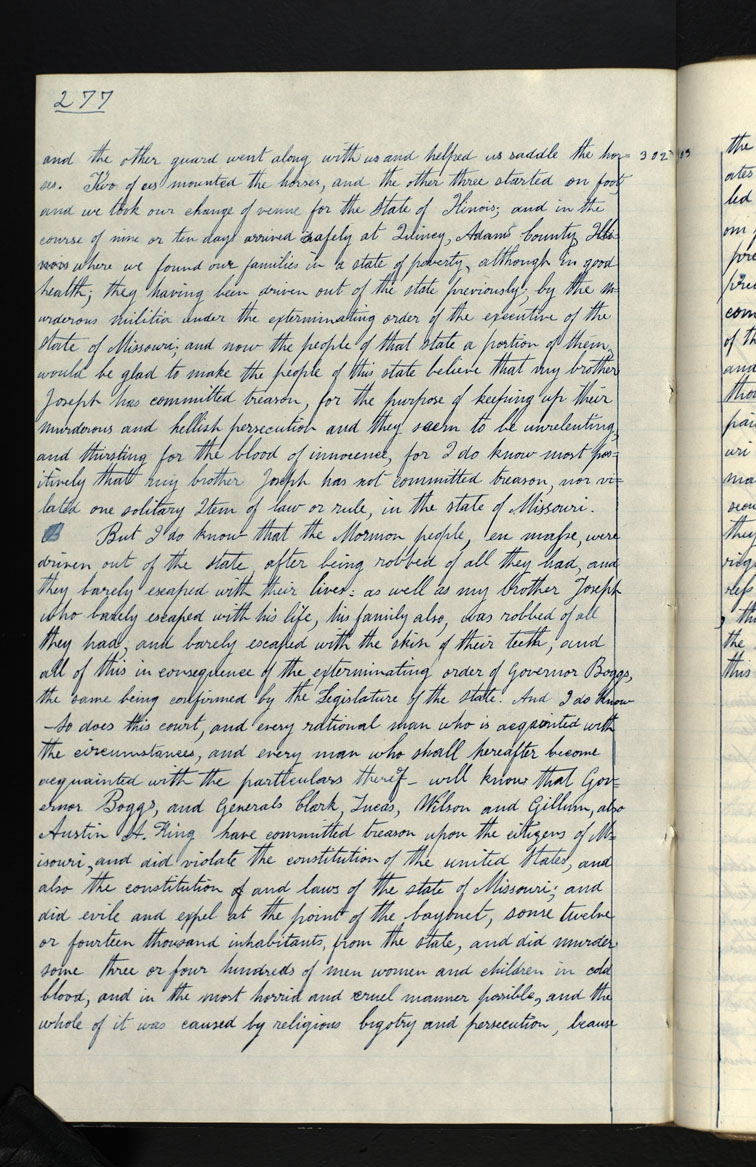 277
and the other guard went along with us and helped us saddle the hor= 302
ses. Two of us mounted the horses, and the other three started on foot,
and we took our change of venue for the State of Ilinois; and in the
course of nine or ten days arrived safely at Quincy, Adams County, Illi-
nois where we found our families in a state of poverty, although in good
health; they having been driven out of the state previously; by the m-
urderous militia under the exterminating order of the executive of the
State of Missouri; and now the people of that state a portion of them,
would be glad to make the people of this state believe that my brother
Joseph has committed treason, for the purpose of keeping up their
murderous and hellish persecution and they seem to be unrelenting,
and thirsting for the blood of innocence, for I do know most pos=
itively that my brother Joseph has not committed treason, nor vi=
lated one solitary Item of law or rule, in the state of Missouri.
But I do know that the Mormon people, en masse, were
driven out of the state, after being robbed of all they had, and
they barely escaped with their lives: as well as my brother Joseph
who barely escaped with his life, his family also, was robbed of all
they had, and barely escaped with the skin of their teeth, and
all of this in consequence of the exterminating order of Governor Boggs,
the same being confirmed by the Legislature of the state. And I do know
- So does this court, and every rational man who is acquainted with
the circumstances, and every man who shall hereafter become
acquainted with the particulars thereof - will know that Gov-
ernor Boggs, and Generals Clark, Lucas, Wilson and Gillum, also
Austin A. King have committed treason upon the citizens of M-
isouri, and did violate the constitution of the united States, and
also the constitution of and laws of the state of Missouri; and
did exile and expel at the point of the bayonet, some twelve
or fourteen thousand inhabitants, from the state, and did murder
some three or four hundreds of men women and children in cold
blood, and in the most horrid and cruel manner possible, and the
whole of it was caused by religious bigotry and persecution, because